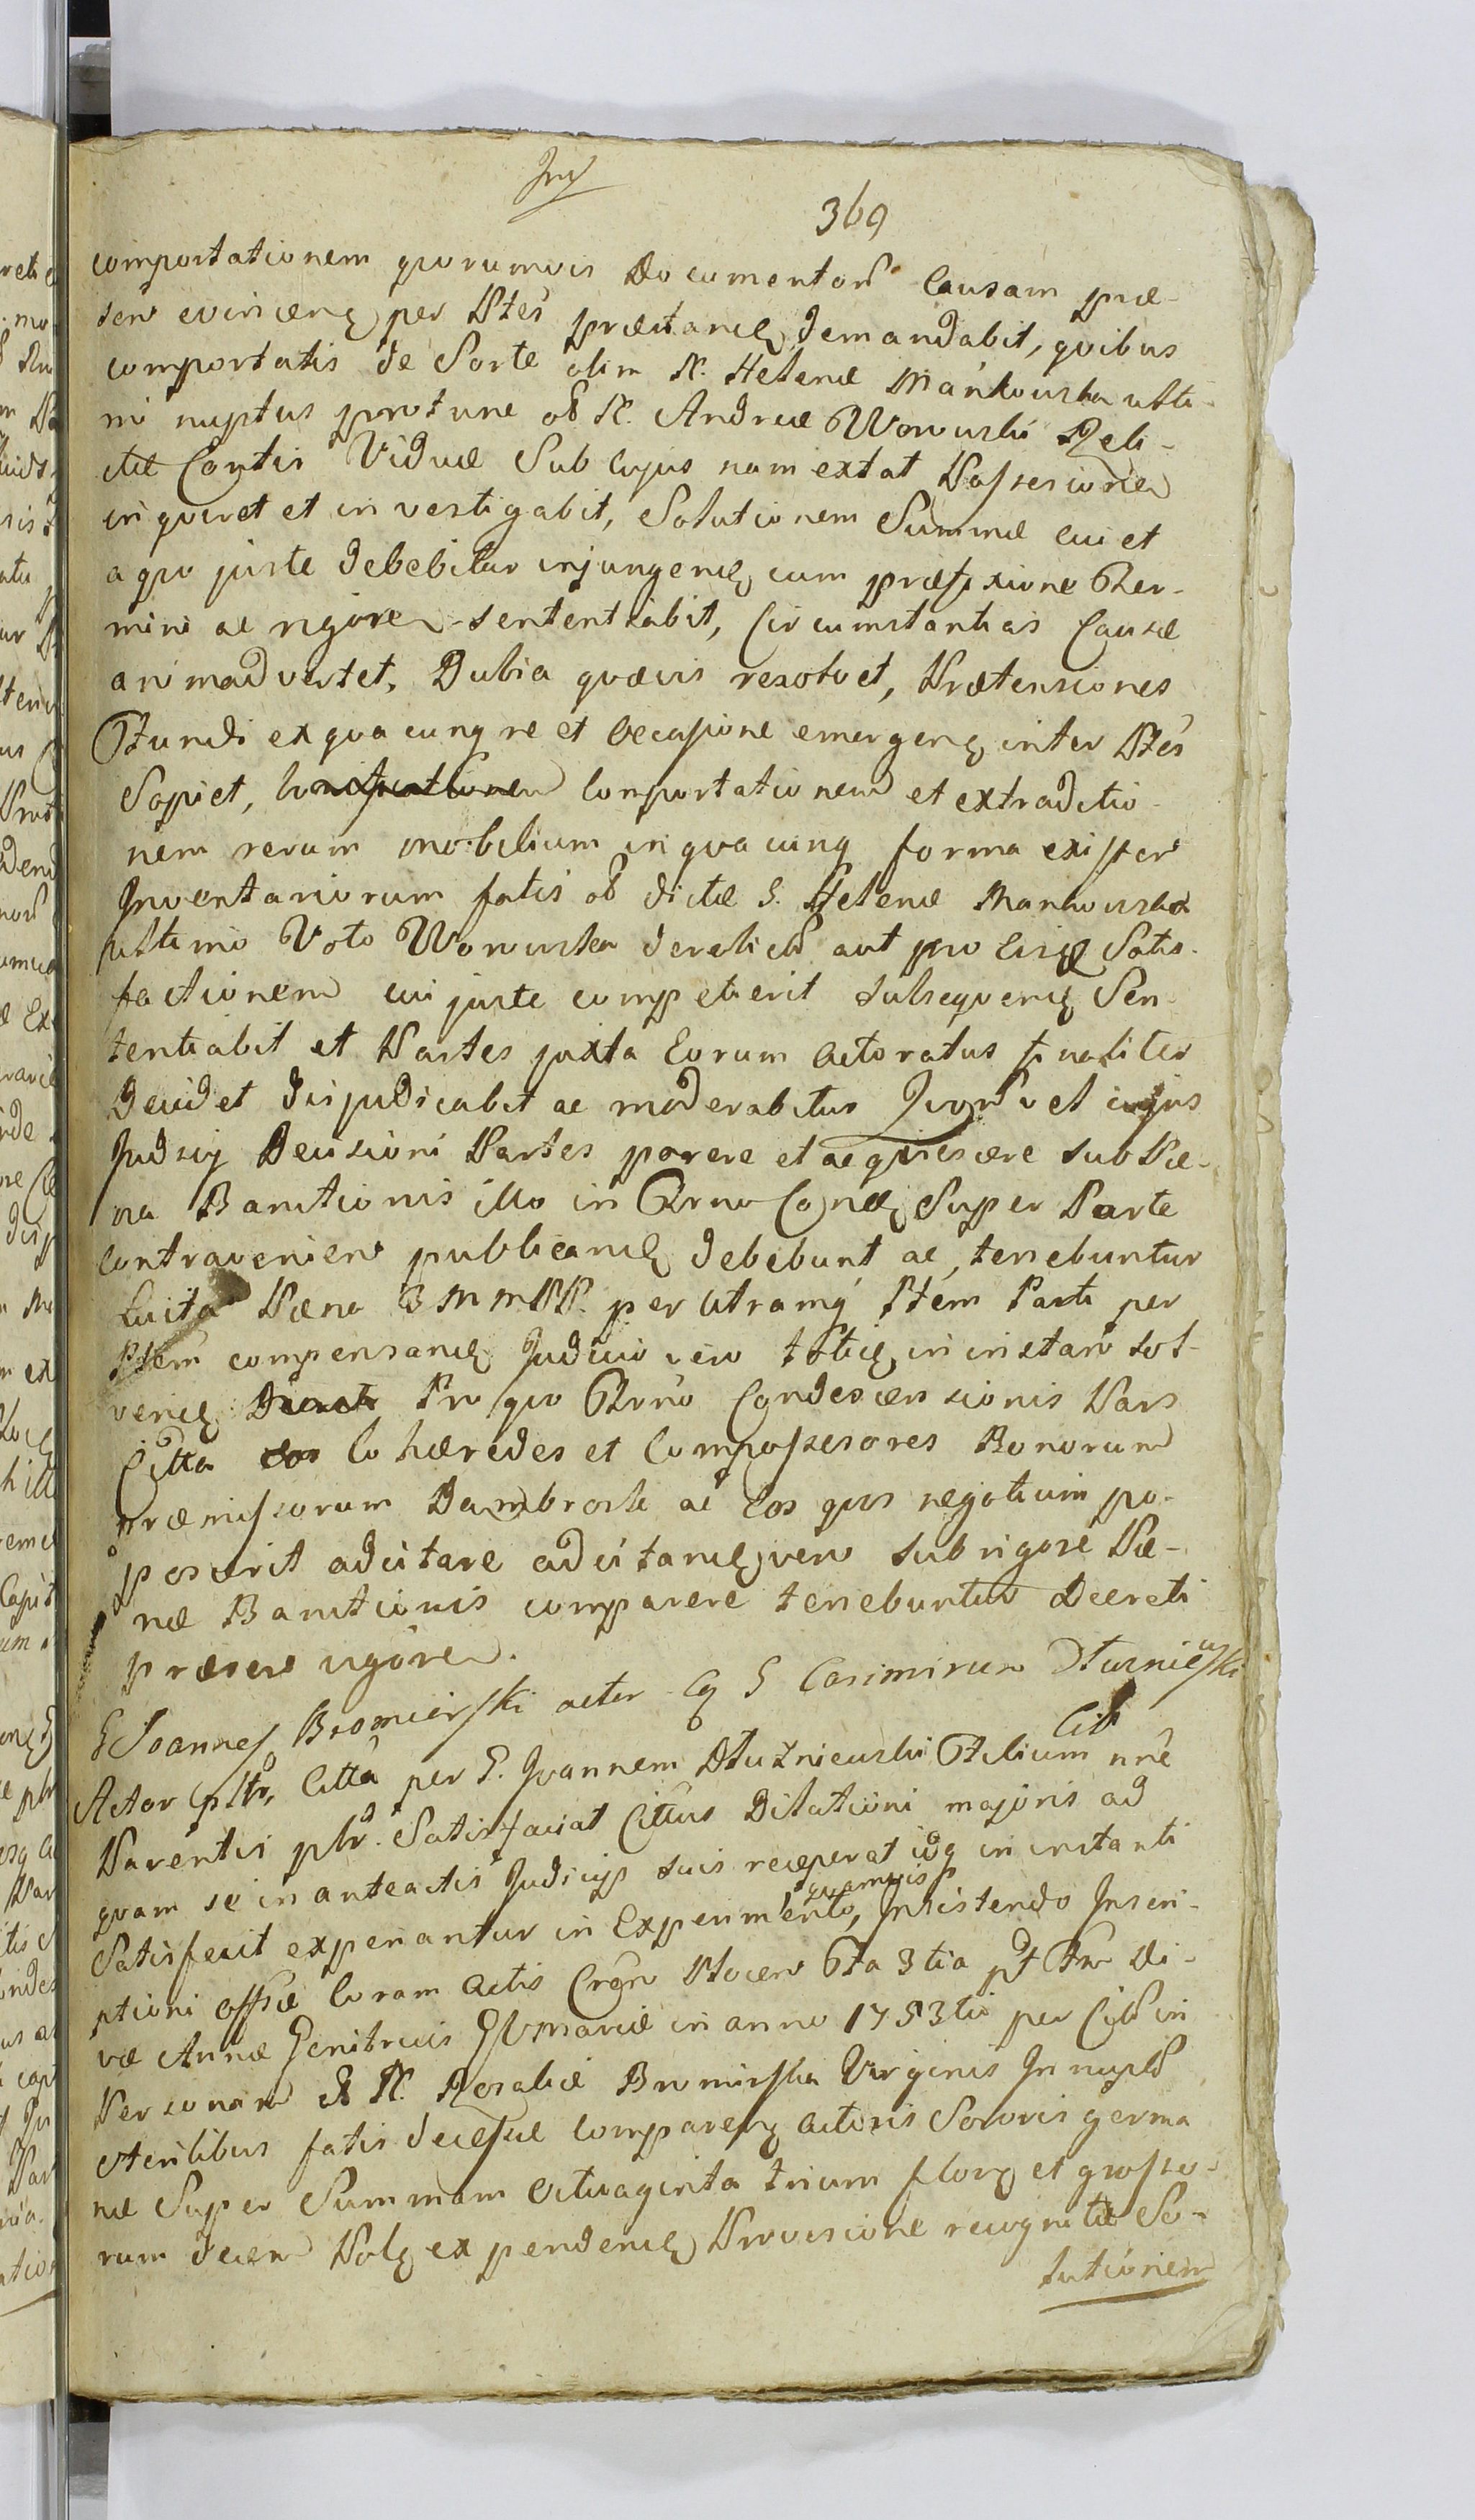 369
comportationem quorumvis Documentorũ Causam præ-
sen evincenꝗ per Ptes præstanꝗ demandabit, quibus
comportatis de Sorte olim N. Helenæ Mańkowska ulti-
mo nuptus protunc ob N. Andreæ Worowski Reli-
ctæ Contis Viduæ Sub cujus nam extat Possessione
inquiret et investigabit, Solutionem Summæ cui et
a quo juste debebitur injungenꝗ cum præfixione Ter-
mini ac rigore sententiabit, Circumstantias Causæ
animadvertet, Dubia quævis resolvet, Prætensiones
Fundi ex qua cunq re et occasione emergenꝗ inter Ptes
Sopiet, Comportationem et extraditio-
nem rerum mobilium in qua cunq forma existen
Inventariorum fatis ob dictæ G. Helenæ Mankowska
ultimo Voto Worowska derelictũ aut pro eisꝗ Satis-
factionem cui juste competierit subsequenꝗ Sen-
tentiabit et Partes juxta Eorum Actoratus finaliter
Decidet dijudicabit ac moderabitur Quorũ et cujus
Judicij Decisioni Partes parere et acquiescere sub Pæ-
na Bannitionis illo in Trno Conꝗ Super Parte
contravenien publicanꝗ debebunt ac tenebuntur
Luita Pæna 3 M m PP. per utramq Ptem Parti per
Ptem compensanꝗ Judicio vero totieꝗ in instan sol-
venꝗ Pro quo Trno Condescensionis Pars
Citta Cohæredes et Compossessores Bonorum
præmissorum Dambrosk ac Eos quos negotium po-
poscerit adcitare adcitanꝗ vero sub rigore Pæ-
næ Bannitionis comparere tenebuntur Decreti
præsen vigore.
G Joannes Bromierski actor Cq G Casimirum Dłuzniewski
Citt
Actor pltr, Citta per G. Joannem Dłużniewski Filium nne
Parentis pltr. Satisfaciat Cittus Dilationi majoris ad
quam se in anteactis Judicijs suis receperat idq in instanti
quamvis
Satisfecit experiantur in Experimento, Insistendo Inscri-
ptioni offsæ Coram Actis Cren Plocen Fta 3tia pt Ftm Di-
væ Annæ Genitricis G V Mariæ in anno 1753tio per Citt in
Personam N. Rosaliæ Bromirska Virginis Innuptæ
sterilibus fatis decessæ Comparenꝗ Actoris Sororis germa
næ Super Summam Octuaginta trium florꝗ et grosso-
rum decem Polꝗ expendenꝗ Provisione recognitæ So-
lutionem